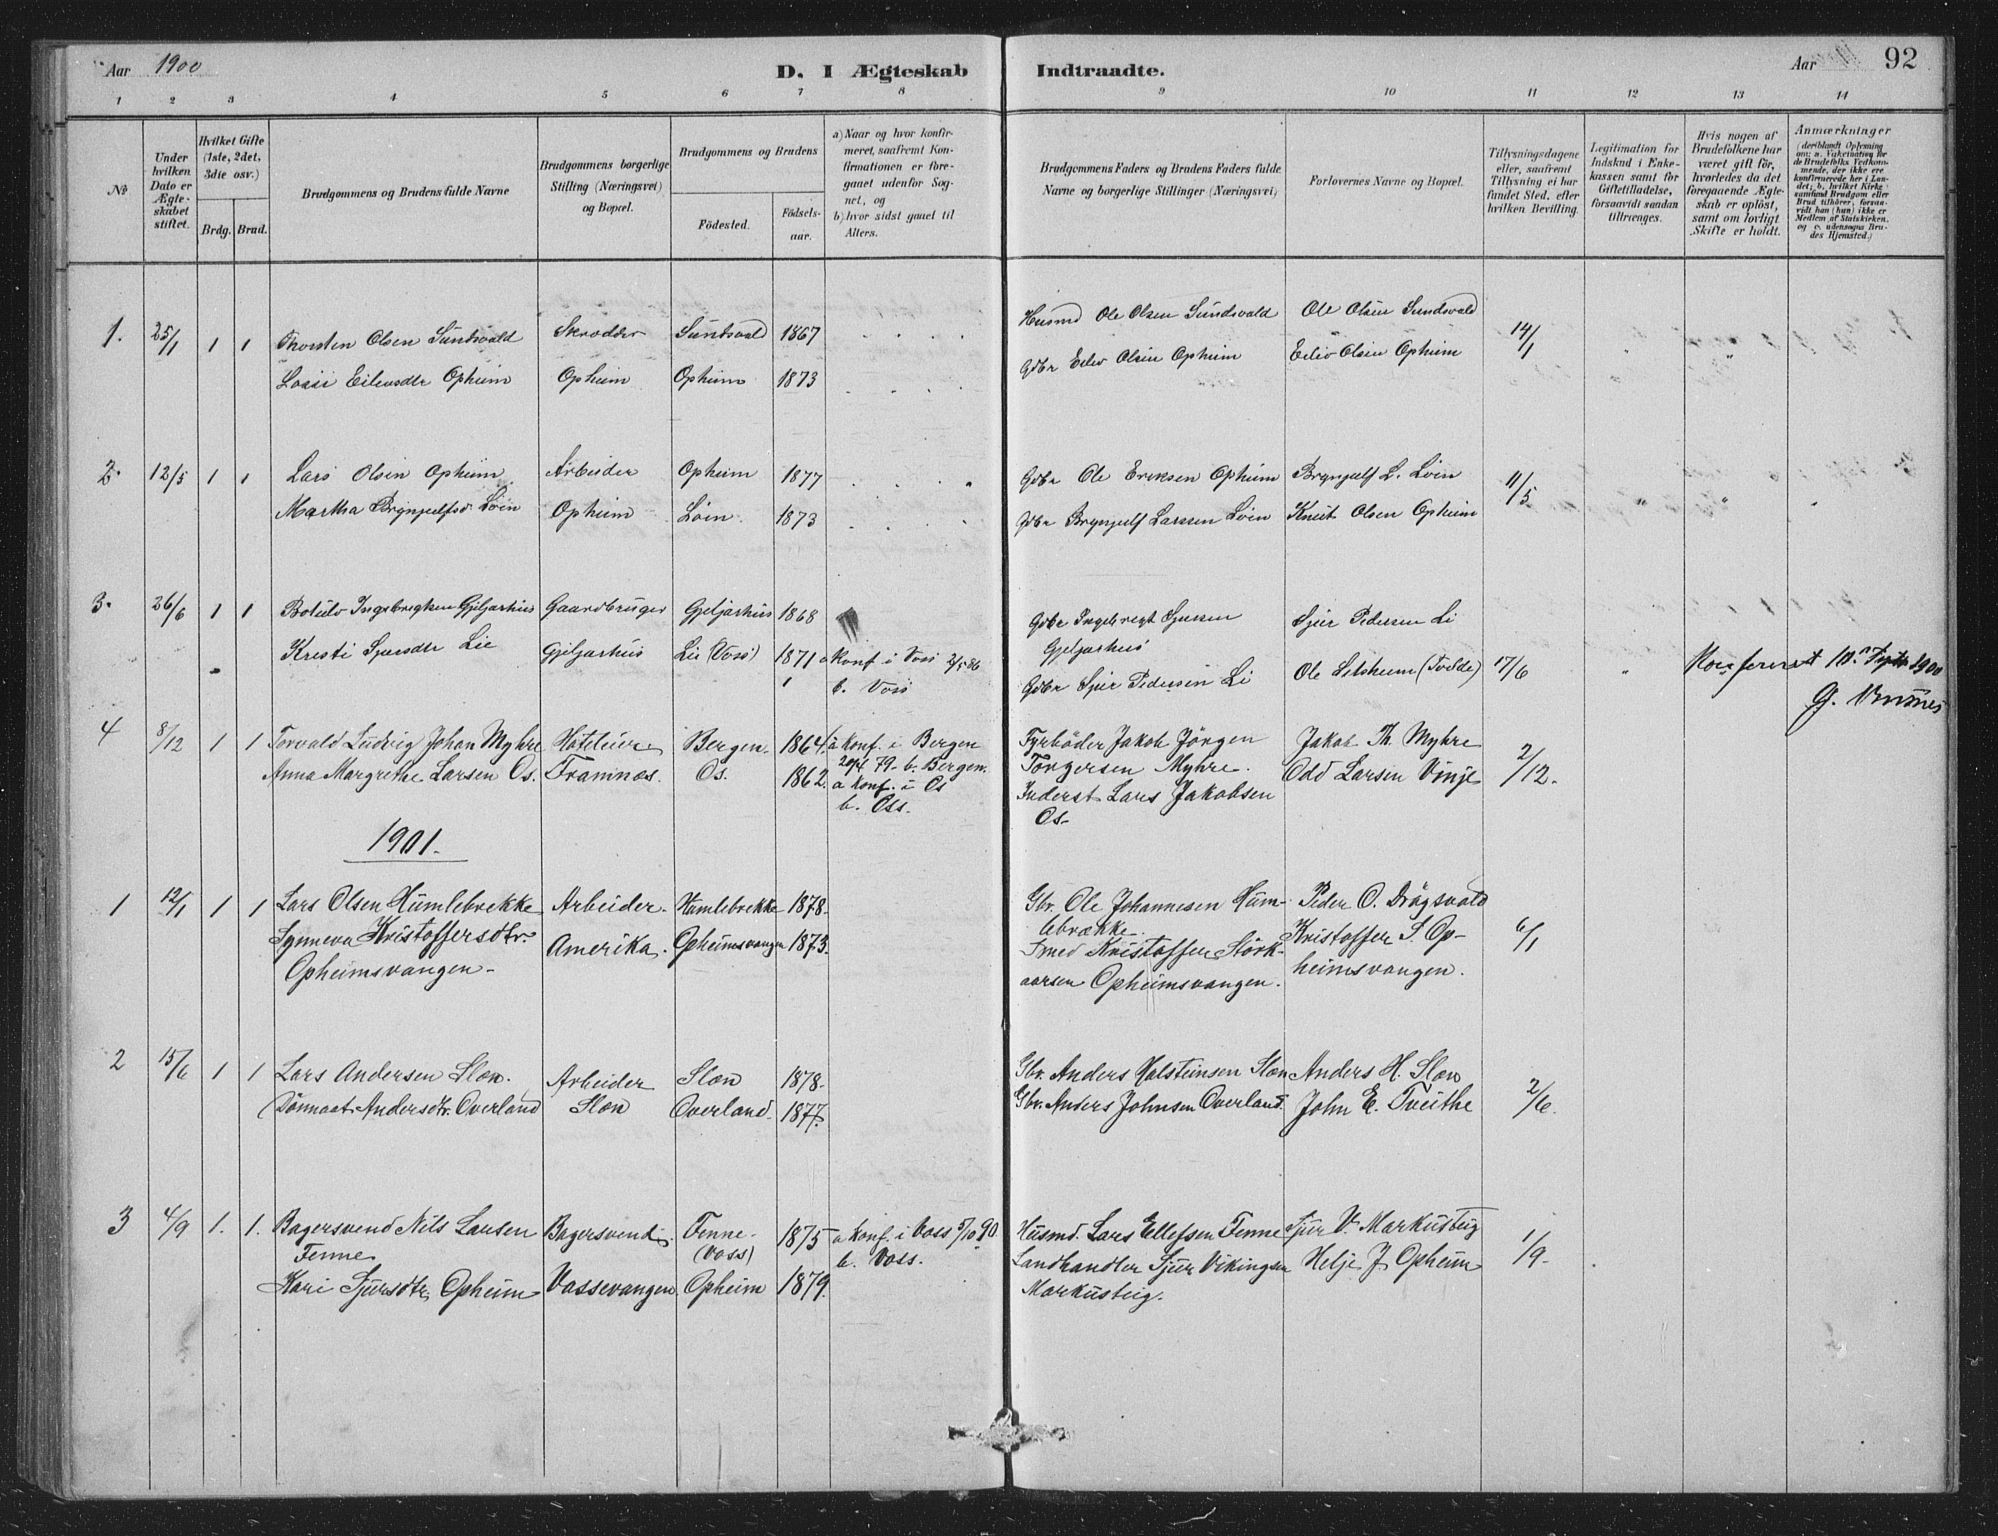 Aar 1900
D. I Ægteskab Indtraadte.
Aar
92
1 2 3 4 5 6 7 8 9 10 11 12 13 14
No
Under hvilken Dato er Ægteskabet stiftet.
Hvilket Gifte (1ste, 2det, 3die osv.)
Brdg. Brud.
Brudgommens og Brudens fulde Navne
Brudgommens borgerlige Stilling (Næringsvei) og Bopæl.
Brudgommens og Brudens
Fødested.
Fødselsaar.
a) Naar og hvor konfirmeret, saafremt Konfirmationen er foregaaet udenfor Sognet, og
b) hvor sidst gaaet til Alters.
Brudgommens Faders og Brudens Faders fulde Navne og borgerlige Stillinger (Næringsvei)
Forlovernes Navne og Bopæl.
Tillysningsdagene eller, saafremt Tillysning ei har fundet Sted, efter hvilken Bevilling.
Legitimation for Indskud i Enkekassen samt for Giftetilladelse, forsaavidt saadan tiltrænges.
Hvis nogen af Brudefolkene har været gift før, hvorledes da det foregaaende Ægteskab er opløst, samt om lovligt Skifte er holdt.
Anmærkninger (deriblandt Oplysning om: a. Vakcination for de Brudefolks Vedkommende, der ikke ere konfirmerede her i Landet; b. hvilket Kirkesamfund Brudgom eller Brud tilhører, forsaavidt han (hun) ikke er Medlem af Statskirken, og c. udensogns Brudes Hjemsted.)
1. 25/1 1 1 Thorsten Olsen Sundsvald Skrædder Sundsvald 1867 Husmd Ole Olsen Sundsvald Ole Olsen Sundsvald 14/1
Eilevsdtr Opheim Opheim Opheim 1873 Gdbr Eilev Olsen Opheim Eilev Olsen Opheim
2. 12/5 1 1 Lars Olsen Opheim Arbeider Opheim 1877 Gdbr Ole Eriksen Opheim Brynjulf L. Løin 11/5
Martha Brynjulfsd Løin Opheim Løin 1873 Gdbr Brynjulf Larssen Løin Knut Olsen Opheim
3. 26/6 1 1 Botulv Ingebregtsen Gjeljarhus Gaardbruger Gjeljarhus 1868 Gdbr Ingebregt Sjursen Sjur Pedersen Li
Gjeljarhus
Kristi Sjursdtr Lie Gjeljarhus Lie (Voss) 1871 a Konf i Voss 2/5 86
b. Voss Gdbr Sjur Pedersen Li Ole Litsheim 17/6
Konfereret 10. Septbr 1900
4 8/12 1 1 Torvald Ludvig Johan Myhre Hoteleier Bergen. 1864. a Konf. i Bergen Fyrbøder Jakob Jørgen Jakob Th. Myhre 2/12.
79 - b. Bergen. Torgersen Myhre.
Anna Margrethe Larsen Os. Framnæs. Os. 1862. a Konf. i Os Inderst Lars Jakobsen Odd Larsen Vinje
b. Oss. Os.
1901.
1 12/1 1 1 Lars Olsen Humlebrekke Arbeider. Humlebrekke 1878. Gbr. Ole Johannesen Hum- Peder O. Drøgsvold 6/1
lebrække.
Synneva Kristoffersdtr. Amerika. Opheimsvangen 1873. Smed Kristoffer Størk- Kristoffer S. Op-
Opheimsvangen. aarsen Opheimsvangen. heimsvangen.
2 15/6 1 1 Lars Andersen Slæn. Arbeider Slæn 1878. Gbr. Anders Holsteinsen Slæn Anders H. Slæn 2/6.
Andersdtr. Overland Slæn Overland. 1877. Gbr. Anders Johnsen Overland. John E. Tveithe
3 4/9 1. 1. Bagersvend Nils Larsen Bagersvend. Finne. 1875 a Konf. i Voss 5/10 90. Husmd. Lars Ellefsen Finne Sjur V. Markusteig 1/9.
Finne (Voss) b. Voss. Landhandler Sjur Vikingsen Helje J Opheim
Kari Sjursdtr. Opheim Vossevangen Opheim 1879. Markusteig.